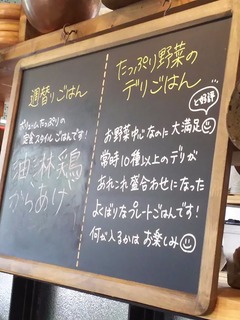 週替りごはん
ボリュームたっぷりの
定食スタイルごはんです!
油淋鶏
からあげ
たっぷり野菜の
デリごはん
と好評
お野菜中心なのに大満足
常時10種以上のデリが
あれこれ盛合わせになった
よくばりなプレートごはんです!
何が入るかはお楽しみ